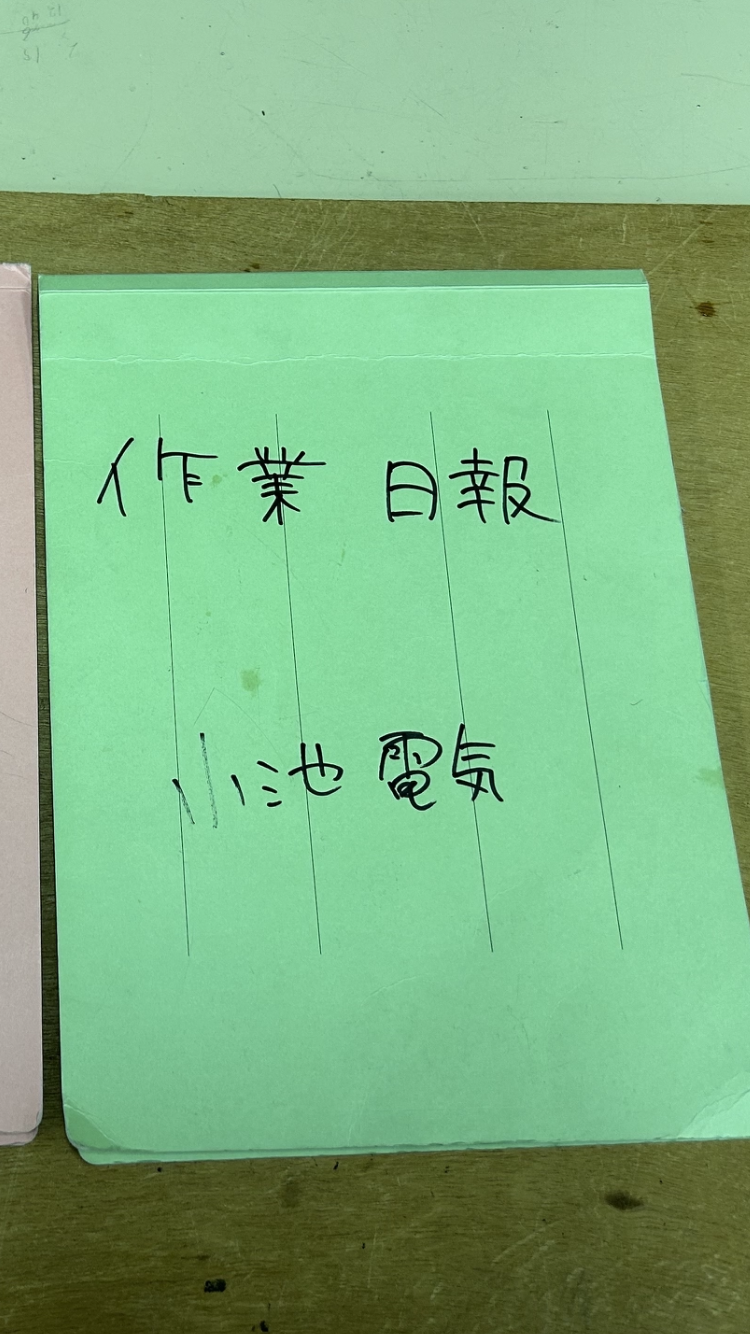 作業 日報
小池 電気